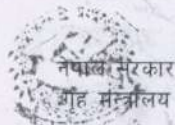 नेपाल सरकार
गृह मन्त्रालय